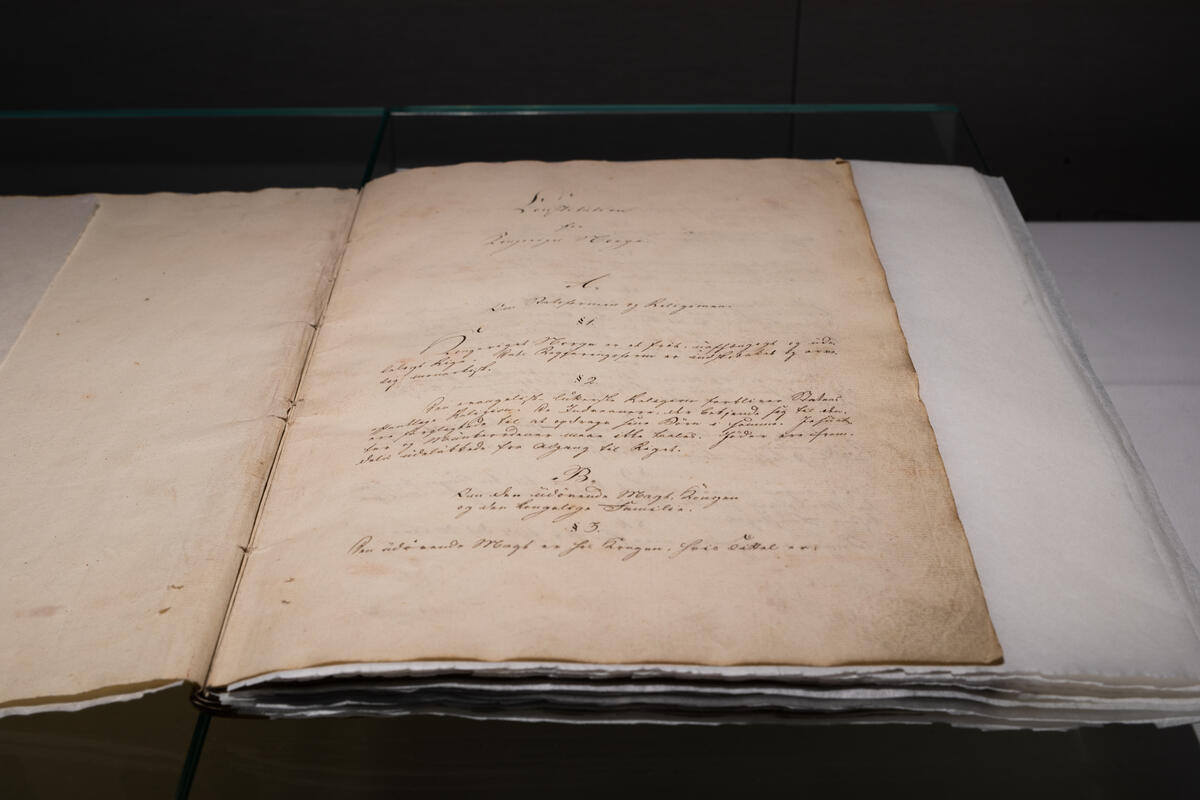 Constitution
for
Kongeriget Norge.
A.
Om Statsformen og Religionen.
§ 1.
Kongeriget Norge er et frit, uafhængigt og ude-
leligt Rige. Dets Regjeringsform er indskrænket og arve-
lig monarkisk.
§ 2.
Den evangelisk-lutherske Religion forbliver Statens
offentlige Religion. De Indvaanere, der bekjende sig til den,
ere forpligtede til at opdrage sine Børn i samme. Jesuit-
ter og Munkeordener maae ikke taales. Jøder ere frem-
deles udelukkede fra Adgang til Riget.
B.
Om den udövende Magt, Kongen
og den kongelige Familie.
§ 3.
Den udövende Magt er hos Kongen, hvis Tittel er: